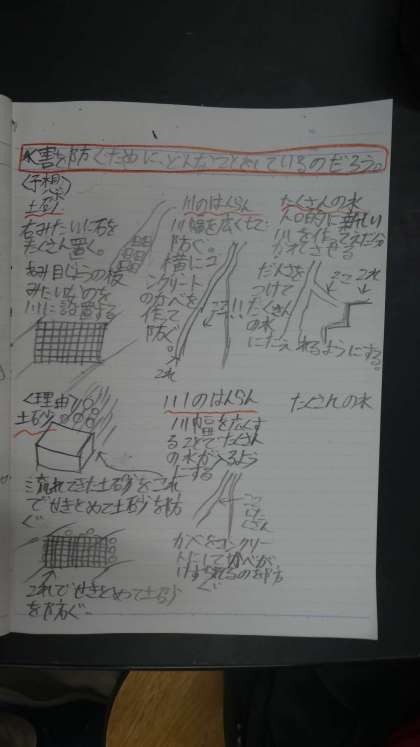 水害を防ぐために、どんなことをしているのだろう。
〈予想〉
土砂
右みたいに石を
たくさん置く。
あみ目じょうの板
みたいなものを
川に設置する
川のはんらん
川幅を広くして
防ぐ。
横にコ
ンクリート
のかべを
作って
防ぐ。
これ
ここ!!
たくさんの水
人口的に新しい
川を作って
ながれさせる
だんさを
つけて
たくさん
の水
にたえれるようにする。
ここ
これ
〈理由〉
土砂
流れてきた土砂をこれ
でせきとめて土砂を防
ぐ
これでせきとめて土砂
を防ぐ
川のはんらん
川幅を広くす
ることでたくさん
の水が入るよう
にする
かべをコンクリー
トにしてかべが
けずられるのを防
ぐ
たくさんの水